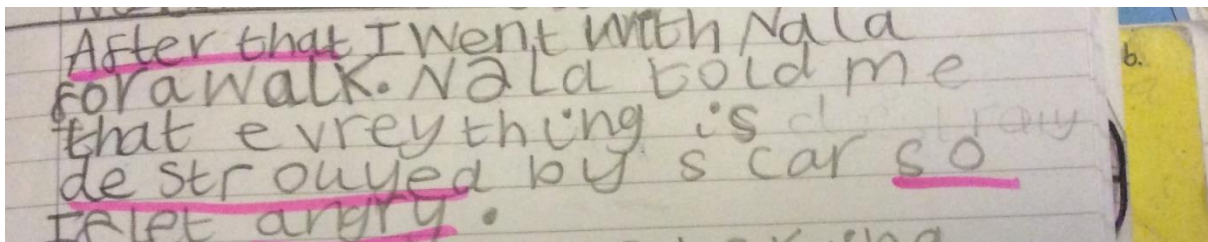 After that I went with Nala
for a walk. Nala told me
that evreything is
destrouyed by scar so
I felet angry.
b.